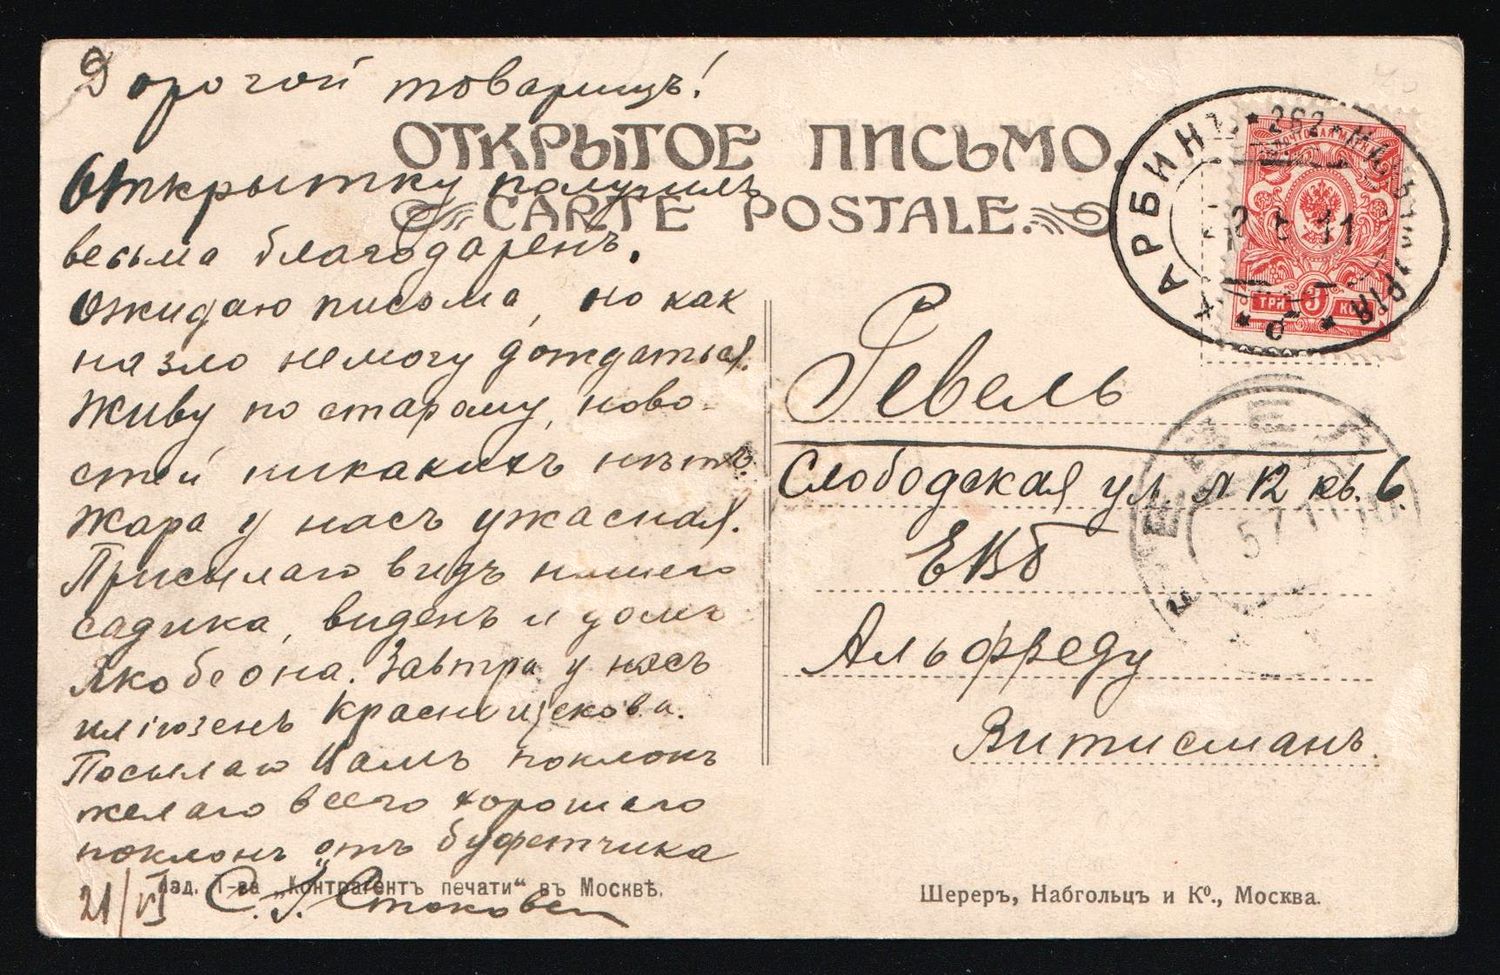 Дорогой товарищъ!
ОТКРЫТОЕ ПИСЬМО.
CARTE POSTALE.
Открытку получилъ
весьма благодаренъ.
Ожидаю письма, но как
на зло немогу дождаться.
Живу по старому, ново-
стей никакихъ нѣтъ.
Жара у насъ ужасная.
Присылаю видъ нашего
садика, виденъ и домъ
Якобсона. Завтра у насъ
иліюзенъ
Посылаю Вамъ поклонъ
желаю всего хорошаго
поклонъ отъ буфетчика
21/VI С.
Изд. Т-ва „Контрагентъ печати“ въ Москвѣ.
ХАРБИНЪ
11
ПОЧТОВАЯ МАРКА
ТРИ 3 КОП
Ревель
Слободская ул № 12 кв. 6.
ЕВБ
Альфреду
Витисманъ.
РЕВЕЛЬ
5 7 11
Шереръ, Набгольцъ и Ко., Москва.